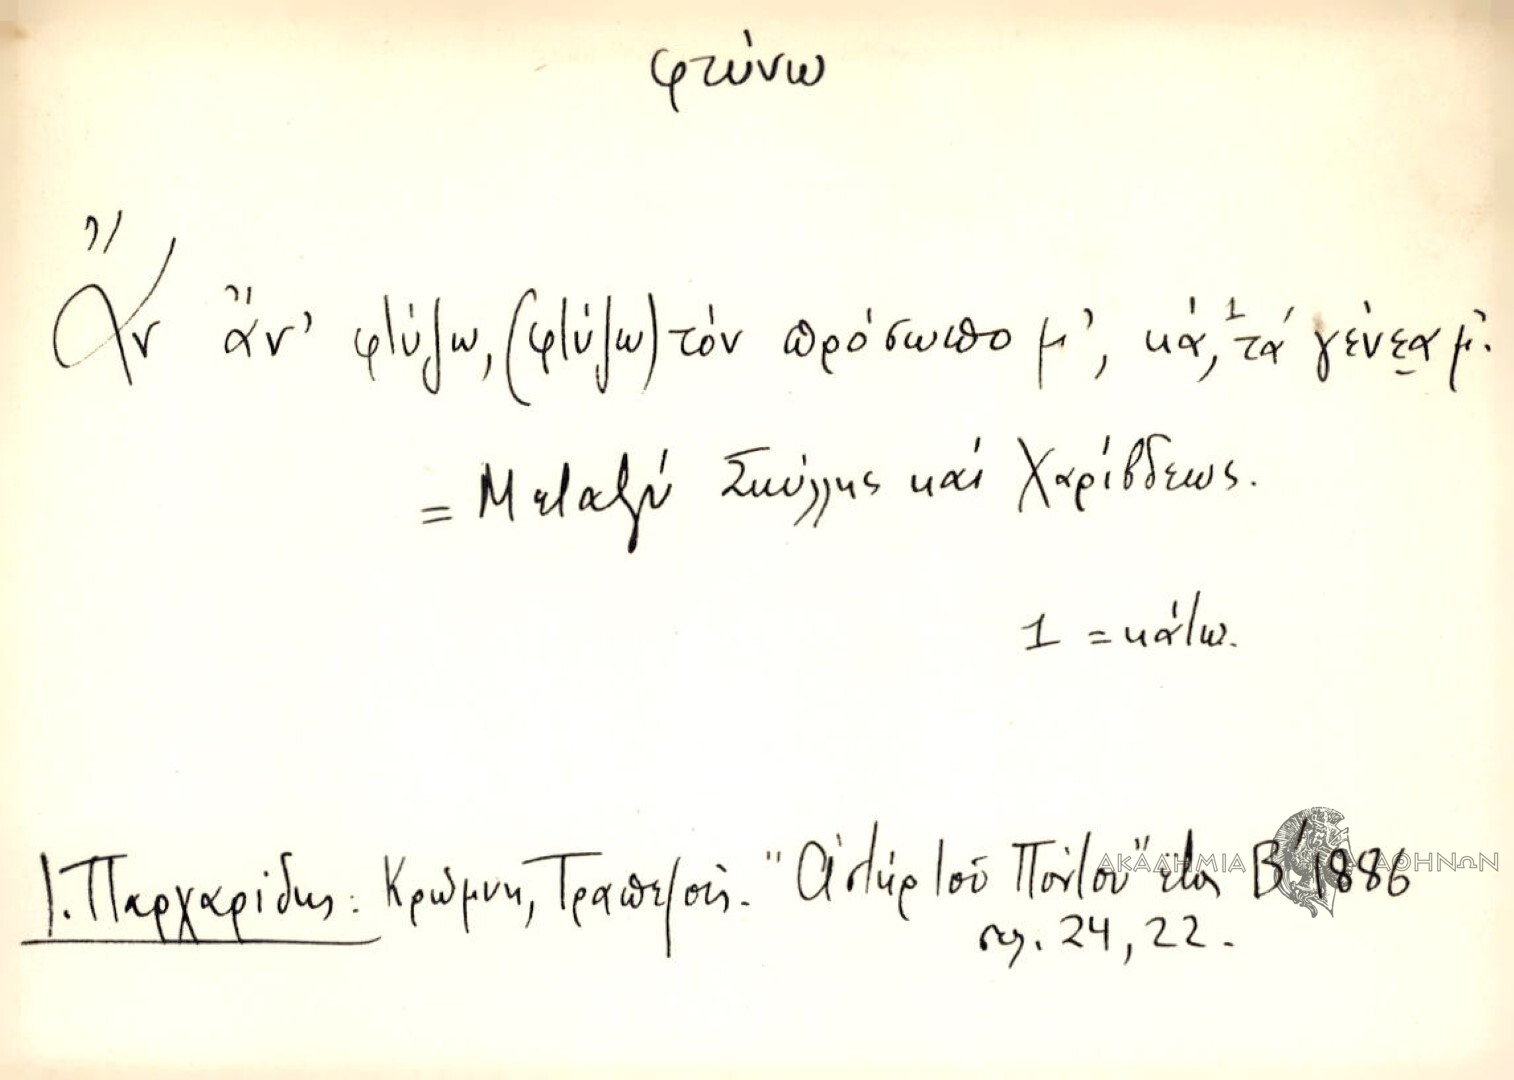 φτύνω
Ἄν ἄν' φτύζω, (φτύζω) τόν πρόσωπο μ', κά,¹ τά γένεα μ'.
= Μεταξύ Σκύλλης καί Χαρίβδεως.
1 = κάτω.
Ι. Παρχαρίδης: Κρώμνη, Τραπεζοῦς. "Ἀστήρ τοῦ Πόντου" ἔτος Β' 1886
σελ. 24, 22.
ΑΚΑΔΗΜΙΑ ΑΘΗΝΩΝ